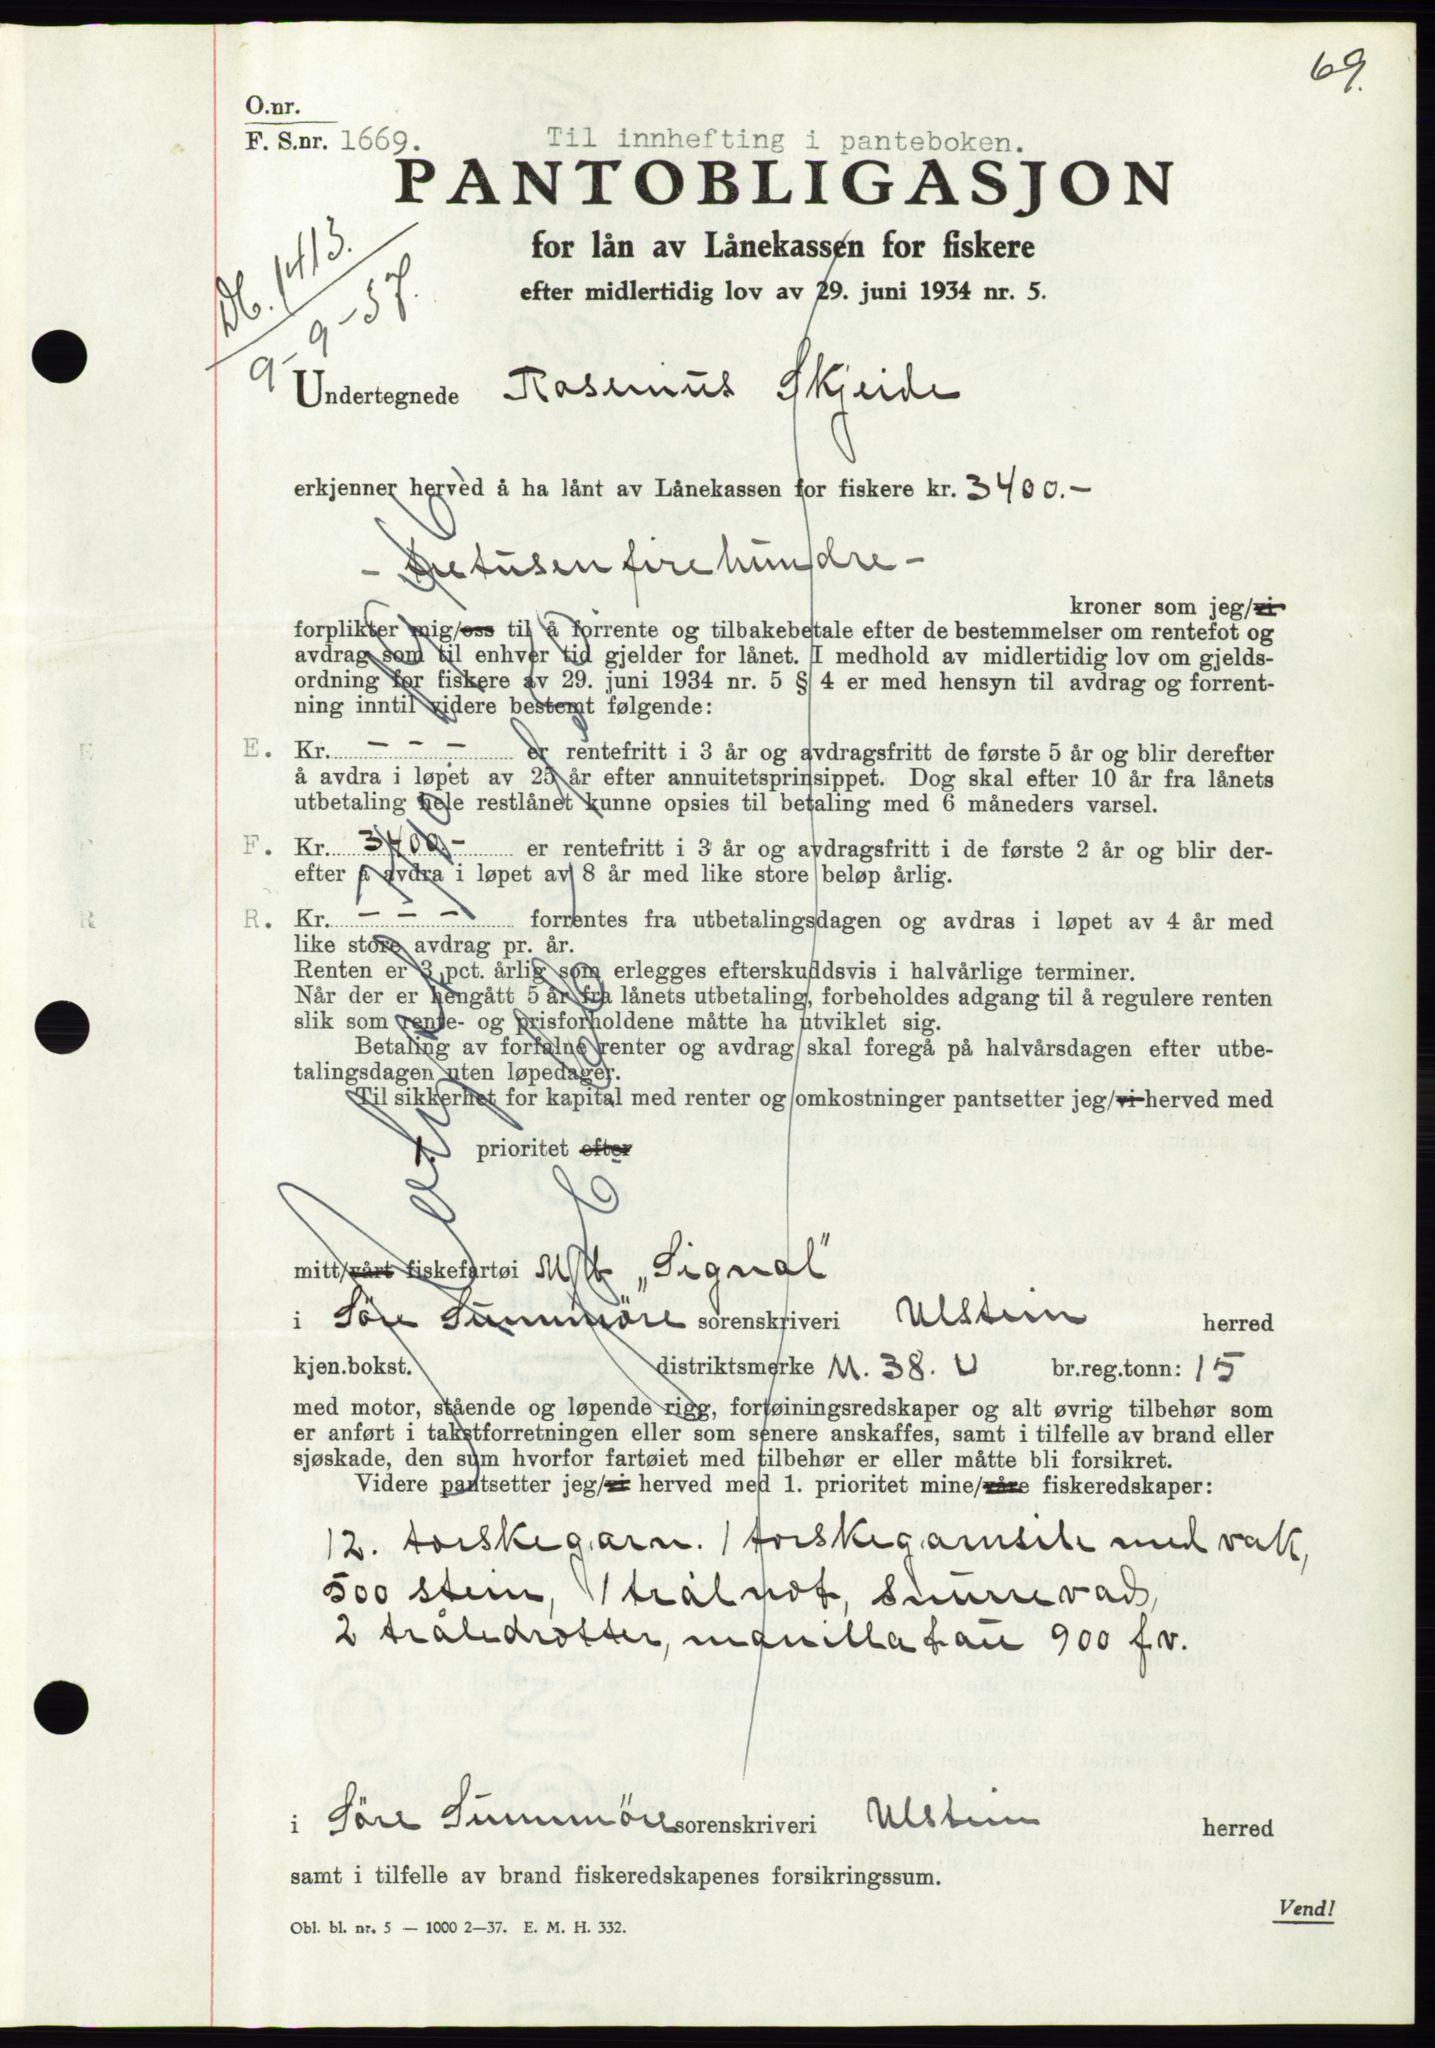 69.
O.nr.
F. S.nr. 1669. Til innhefting i panteboken.
PANTOBLIGASJON
for lån av Lånekassen for fiskere
efter midlertidig lov av 29. juni 1934 nr. 5.
Db. 1413.
9-9-37.
Undertegnede Rasmus Skjeide
erkjenner herved å ha lånt av Lånekassen for fiskere kr. 3400.-
- tretusenfirehundre -
kroner som jeg/vi
forplikter mig/oss til å forrente og tilbakebetale efter de bestemmelser om rentefot og
avdrag som til enhver tid gjelder for lånet. I medhold av midlertidig lov om gjelds-
ordning for fiskere av 29. juni 1934 nr. 5 § 4 er med hensyn til avdrag og forrent-
ning inntil videre bestemt følgende:
E. Kr. - - - er rentefritt i 3 år og avdragsfritt de første 5 år og blir derefter
å avdra i løpet av 25 år efter annuitetsprinsippet. Dog skal efter 10 år fra lånets
utbetaling hele restlånet kunne opsies til betaling med 6 måneders varsel.
F. Kr. 3400.- er rentefritt i 3 år og avdragsfritt i de første 2 år og blir der-
efter å avdra i løpet av 8 år med like store beløp årlig.
R. Kr. - - - forrentes fra utbetalingsdagen og avdras i løpet av 4 år med
like store avdrag pr. år.
Renten er 3 pct. årlig som erlegges efterskuddsvis i halvårlige terminer.
Når der er hengått 5 år fra lånets utbetaling, forbeholdes adgang til å regulere renten
slik som rente- og prisforholdene måtte ha utviklet sig.
Betaling av forfalne renter og avdrag skal foregå på halvårsdagen efter utbe-
talingsdagen uten løpedager.
Til sikkerhet for kapital med renter og omkostninger pantsetter jeg/vi herved med
1. prioritet efter
mitt/vårt fiskefartøi M/b "Signal"
i Söre Sunnmöre sorenskriveri Ulstein herred
kjen.bokst. distriktsmerke M. 38. U br.reg.tonn: 15
med motor, stående og løpende rigg, fortøiningsredskaper og alt øvrig tilbehør som
er anført i takstforretningen eller som senere anskaffes, samt i tilfelle av brand eller
sjøskade, den sum hvorfor fartøiet med tilbehør er eller måtte bli forsikret.
Videre pantsetter jeg/vi herved med 1. prioritet mine/våre fiskeredskaper:
12. torskegarn. 1 torskegarnsile med vak,
500 stein, 1 trålnot, snurrevad,
2 tråledrotter, manillatau 900 fv.
i Söre Sunnmöre sorenskriveri Ulstein herred
samt i tilfelle av brand fiskeredskapenes forsikringssum.
Vend!
Obl. bl. nr. 5 — 1000 2—37. E. M. H. 332.